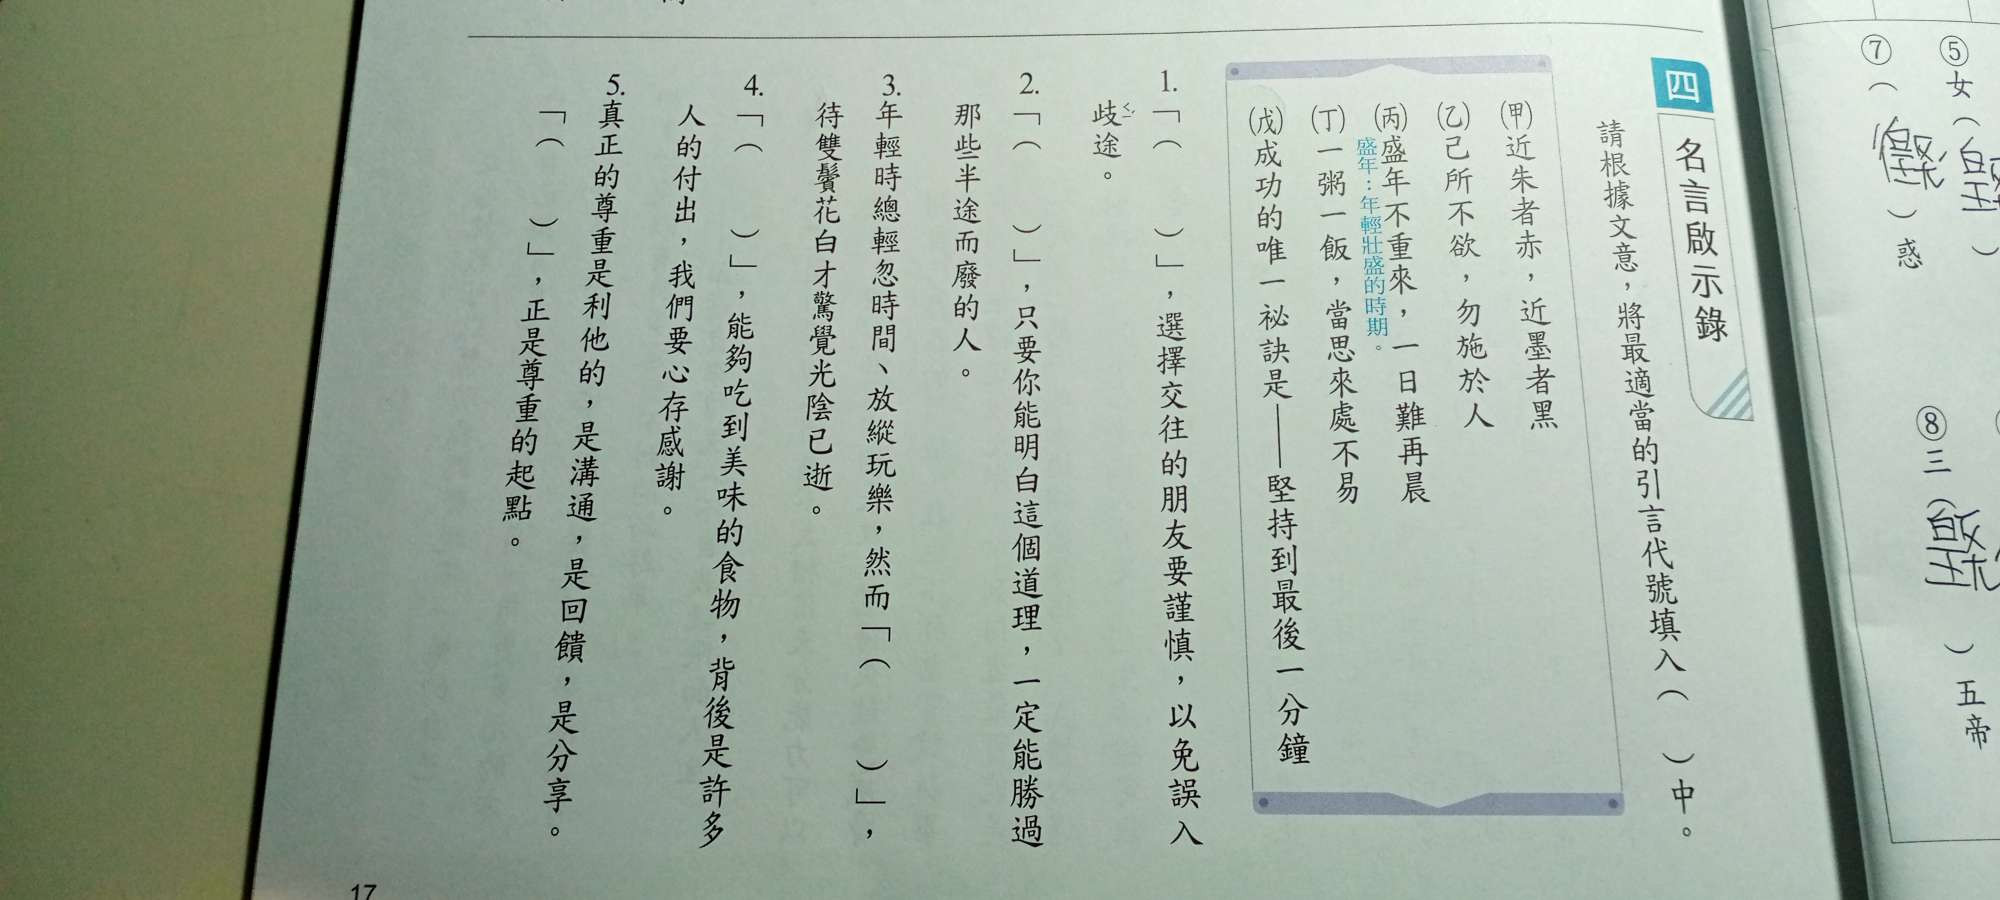 ⑤女（
）
⑦（
）惑
⑧三（
）五帝
四 名言啟示錄
請根據文意，將最適當的引言代號填入（　）中。
(甲)近朱者赤，近墨者黑
(乙)己所不欲，勿施於人
(丙)盛年不重來，一日難再晨
盛年：年輕壯盛的時期。
(丁)一粥一飯，當思來處不易
(戊)成功的唯一祕訣是——堅持到最後一分鐘
1.「（　）」，選擇交往的朋友要謹慎，以免誤入
歧ㄑㄧˊ途。
2.「（　）」，只要你能明白這個道理，一定能勝過
那些半途而廢的人。
3.年輕時總輕忽時間、放縱玩樂，然而「（　）」，
待雙鬢花白才驚覺光陰已逝。
4.「（　）」，能夠吃到美味的食物，背後是許多
人的付出，我們要心存感謝。
5.真正的尊重是利他的，是溝通，是回饋，是分享。
「（　）」，正是尊重的起點。
17